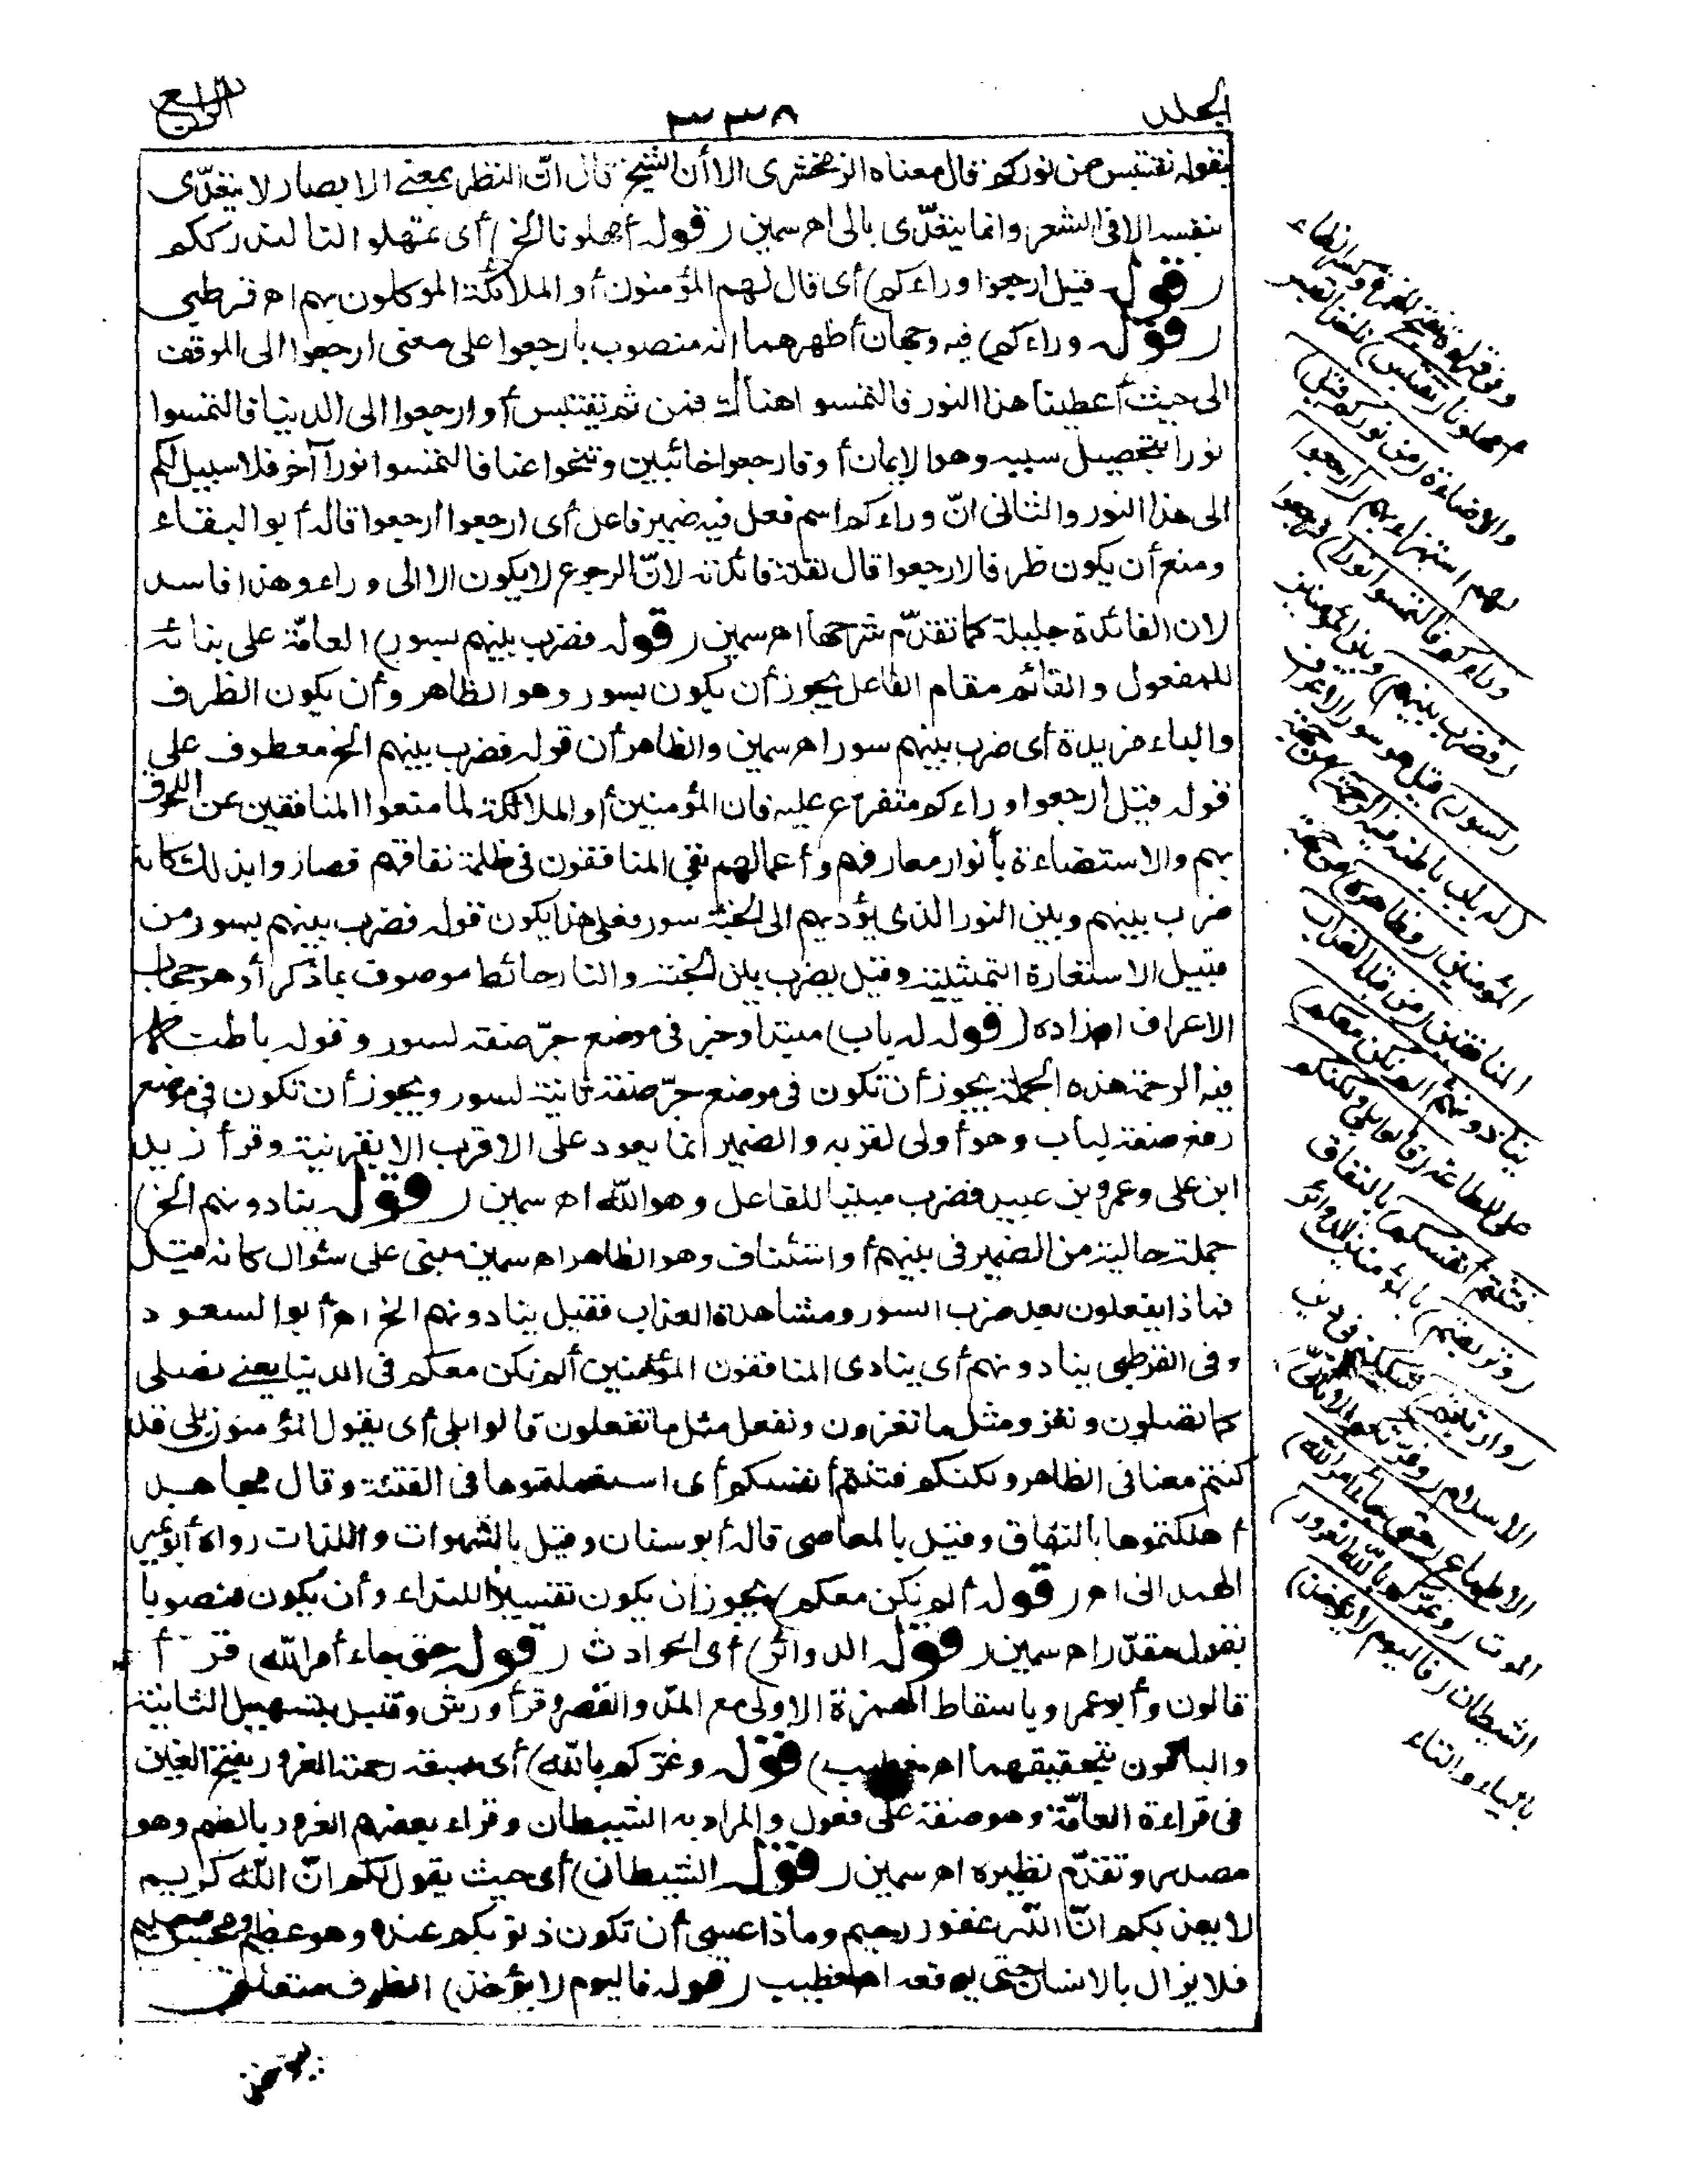 الجلد
٣٣٨
الرابع
بقوله نقتبس من نوركم قال معناه الزمخشرى الا أن الشيخ قال انّ النظر بمعنى الابصار لا يتعدّى
بنفسه الا فى الشعر وانما يتعدّى بالى اھ سمين (قوله أمهلونا الخ) أى تمهلوا لنا لندرككم
(قوله قيل ارجعوا وراءكم) أى قال لهم المؤمنون أو الملائكة الموكلون بهم اھ قرطبى
(قوله وراءكم) فيه وجهان أظهرهما انه منصوب بارجعوا على معنى ارجعوا الى الموقف
الى حيث أعطينا هذا النور فالتمسوا هناك فمن ثم يقتبس أو ارجعوا الى الدنيا فالتمسوا
نورا بتحصيل سببه وهو الايمان أو فارجعوا خائبين وتنحوا عنا فالتمسوا نورا آخر فلا سبيل لكم
الى هذا النور والثانى انّ وراءكم اسم فعل فيه ضمير فاعل أى ارجعوا ارجعوا قاله أبو البقاء
ومنع أن يكون ظرفا لارجعوا قال لقلة فائدته لانّ الرجوع لا يكون الا الى وراء وهذا فاسد
لان الفائدة جليلة كما تقدّم شرحها اھ سمين (قوله فضرب بينهم بسور) العامّة على بنائه
للمفعول والقائم مقام الفاعل يجوز أن يكون بسور وهو الظاهر وأن يكون الظرف
والباء مزيدة أى ضرب بينهم سور اھ سمين والظاهر أن قوله فضرب بينهم الخ معطوف على
قوله قيل ارجعوا وراءكم متفرع عليه فان المؤمنين أو الملائكة لما منعوا المنافقين عن اللحوق
بهم والاستضاءة بأنوار معارفهم وأعمالهم بقى المنافقون فى ظلمة نفاقهم فصاروا بذلك كانه
ضرب بينهم وبين النور الذى يؤديهم الى الجنة سور فعلى هذا يكون قوله فضرب بينهم بسور من
قبيل الاستعارة التمثيلية وقيل يضرب بين الجنة والنار حائط موصوف بما ذكر أو هو حجاب
الاعراف اھ زاده (قوله له باب) مبتدأ وخبر فى موضع جرّ صفة لسور وقوله باطنه
فيه الرحمة هذه الجملة يجوز أن تكون فى موضع جرّ صفة ثانية لسور ويجوز أن تكون فى موضع
رفع صفة لباب وهو أولى لقربه والضمير انما يعود على الاقرب الا بقرينة وقرأ زيد
ابن على وعمرو بن عبيد فضرب مبنيا للفاعل وهو الله اھ سمين (قوله ينادونهم الخ)
جملة حالية من الضمير فى بينهم أو استئناف وهو الظاهر اھ سمين مبنى على سؤال كانه قيل
فماذا يفعلون بعد ضرب السور ومشاهدة العذاب فقيل ينادونهم الخ اھ أبو السعود
وفى القرطبى ينادونهم أى ينادى المنافقون المؤمنين ألم نكن معكم فى الدنيا يعنى نصلى
كما تصلون ونغزو مثل ما تغزون ونفعل مثل ما تفعلون قالوا بلى أى يقول المؤمنون بلى قد
كنتم معنا فى الظاهر ولكنكم فتنتم أنفسكم أى استعملتموها فى الفتنة وقال مجاهد
أهلكتموها بالنفاق وقيل بالمعاصى قاله أبو سنان وقيل بالشهوات واللذات رواه أبو نمير
الهمدانى اھ (قوله ألم نكن معكم) يجوز أن يكون تفسيرا للنداء وأن يكون منصوبا
بقول مقدّر اھ سمين (قوله الدوائر) أى الحوادث (قوله حتى جاء أمر الله) قرأ
قالون وأبو عمرو باسقاط الهمزة الاولى مع المدّ والقصر وقرأ ورش وقنبل بتسهيل الثانية
والباقون بتحقيقهما اھ خطيب (قوله وغرّكم بالله) أى بسعة رحمته الغرور بفتح الغين
فى قراءة العامّة وهو صفة على فعول والمراد به الشيطان وقراء بعضهم الغرور بالضم وهو
مصدر وتقدّم نظيره اھ سمين (قوله الشيطان) أى حيث يقول لكم انّ الله كريم
لا يعذبكم انّ الله غفور رحيم وماذا عسى أن تكون ذنوبكم عنده وهو عظيم
فلا يزال بالانسان حتى يوقعه اھ خطيب (قوله فاليوم لا يؤخذ) الظرف متعلق
وفى قراءة بفتح الهمزة وكسر الظاء
أمهلونا (نقتبس) نأخذ القبس
والاضاءة (من نوركم قيل)
لهم استهزاء بهم (ارجعوا
وراءكم فالتمسوا نورا) فرجعوا
(فضرب بينهم) وبين المؤمنين
(بسور) قيل هو سور الاعراف
(له باب باطنه فيه الرحمة) من جهة
المؤمنين (وظاهره) من جهة
المنافقين (من قبله العذاب
ينادونهم ألم نكن معكم)
على الطاعة (قالوا بلى ولكنكم
فتنتم أنفسكم) بالنفاق
(وتربصتم) بالمؤمنين الدوائر
(وارتبتم) شككتم فى دين
الاسلام (وغرّتكم الامانىّ)
الاطماع (حتى جاء أمر الله)
الموت (وغرّكم بالله الغرور)
الشيطان (فاليوم لا يؤخذ)
بالياء والتاء